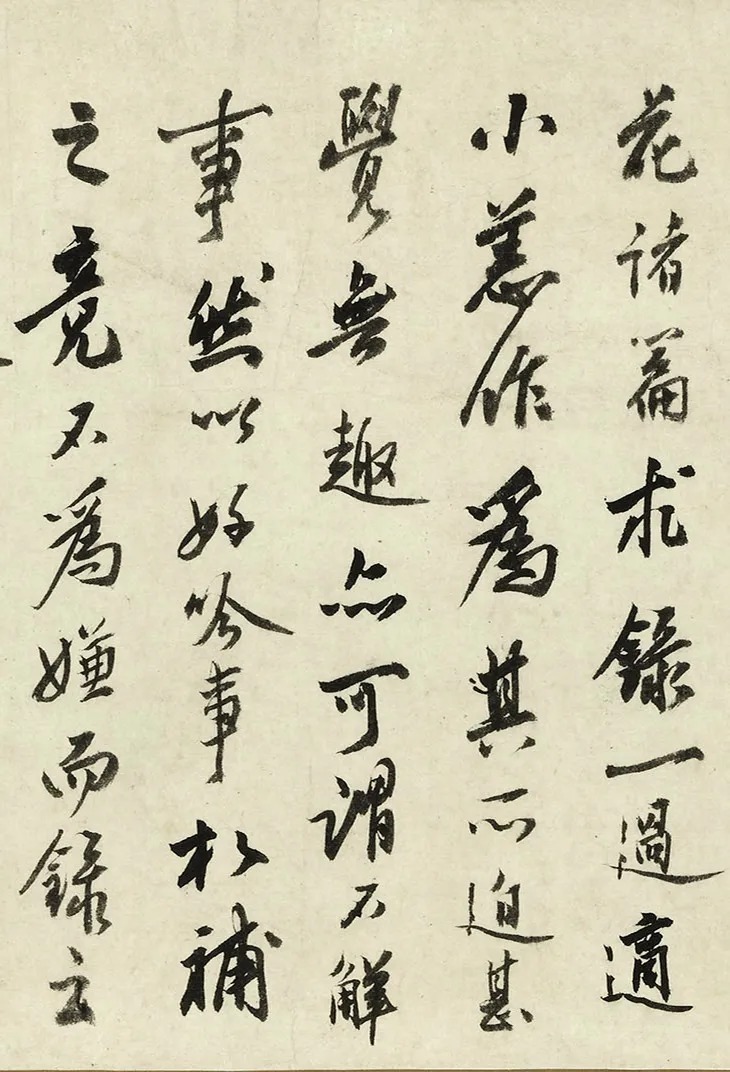 花諸篇求錄一過適
小恙作為其所迫甚
覺無趣亦可謂不解
事然以好吟事相補
之竟不為嫌而錄云